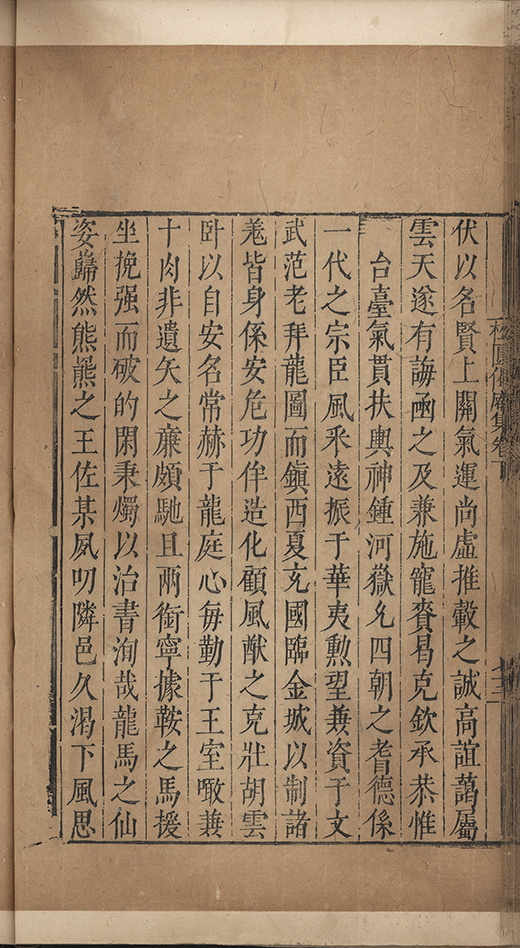 伏以名賢上關氣運尚虛推轂之誠高誼藹屬
雲天遂有誨函之及兼施寵賚曷克欽承恭惟
台臺氣貫扶輿神鍾河嶽允四朝之耆德係
一代之宗臣風采遠振于華夷勲望兼資于文
武范老拜龍圖而鎮西夏充國臨金城以制諸
羗皆身係安危功侔造化顧風猷之克壯胡雲
卧以自安名常赫于龍庭心每勤于王室噉兼
十肉非遺矢之廉頗馳且兩銜寧據鞍之馬援
坐挽强而破的閑秉燭以治書洵哉龍馬之仙
姿巋然熊羆之王佐某夙叨隣邑久渴下風思
松圓偈庵集卷下